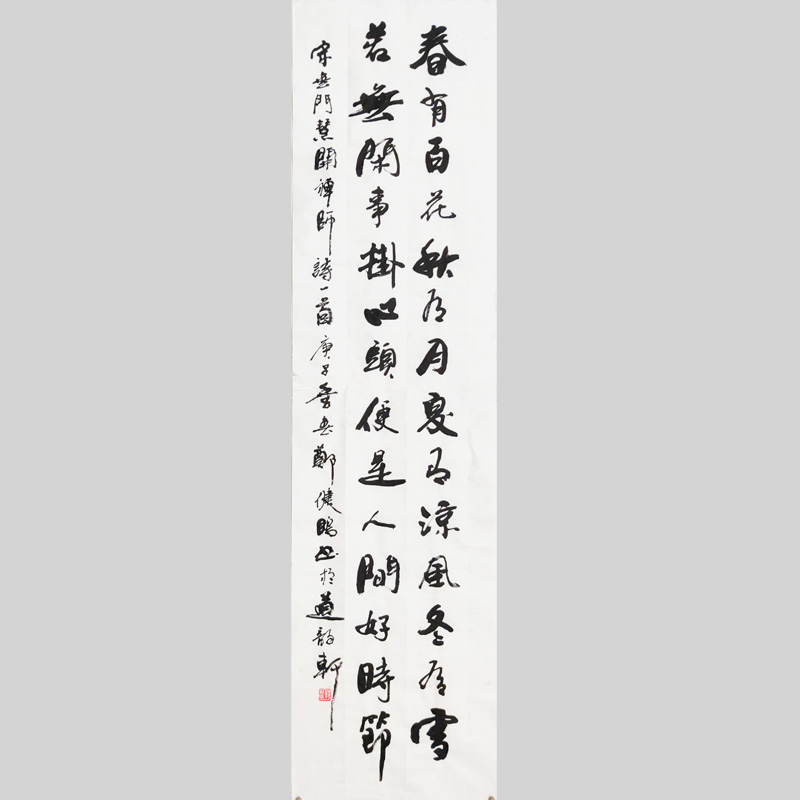 春有百花秋有月夏有涼風冬有雪
若無閑事掛心頭便是人間好時節
宋無門慧開禪師詩一首庚子季春鄭健書於韵軒